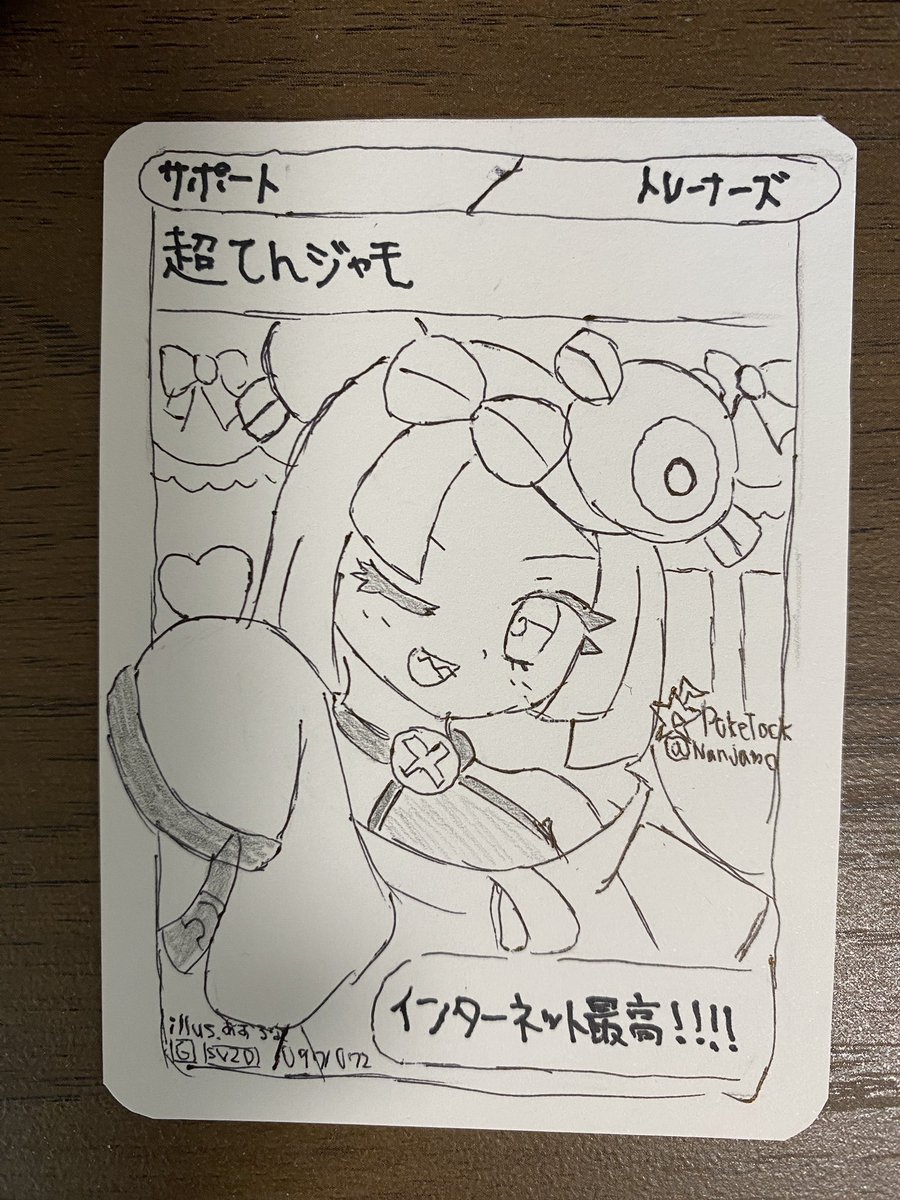 サポート
トレーナーズ
超てんジャモ
PokeTock
@Nanjamo
インターネット最高!!!!
illus.
G SV2D 097/072